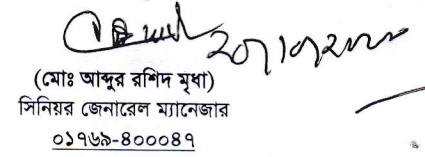 (মোঃ আব্দুর রশিদ মৃধা)
সিনিয়র জেনারেল ম্যানেজার
০১৭৬৯-৪০০০৪৭